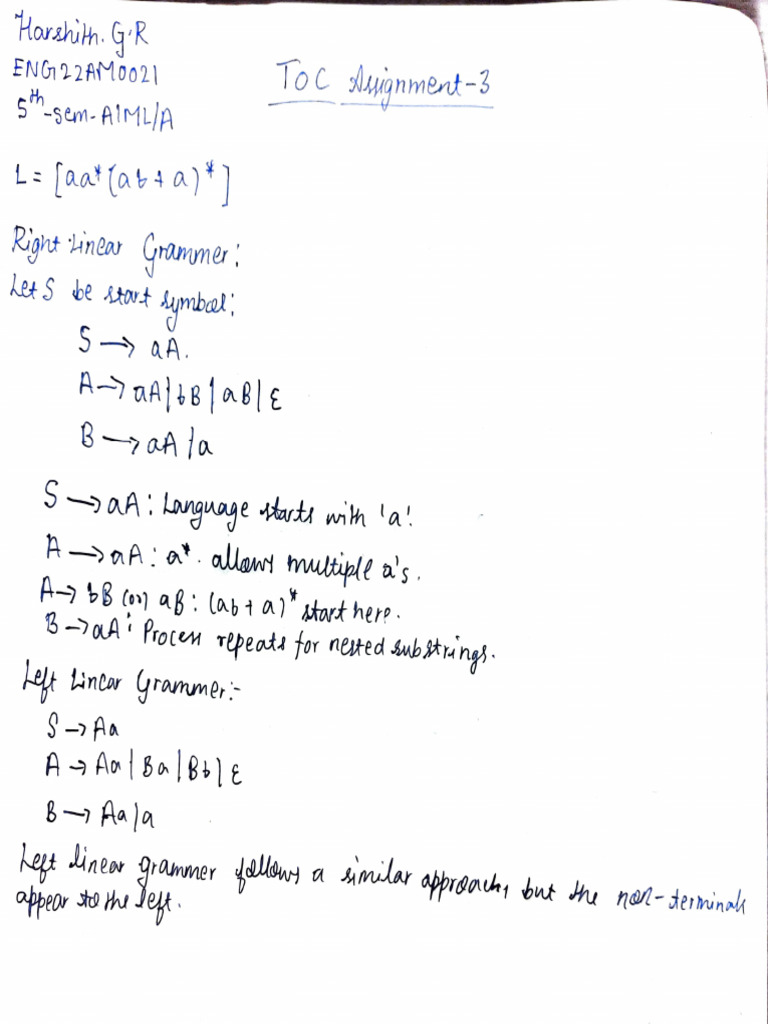 Harshith. G.R
ENG22AM0021
5th-sem-AIML/A
TOC Assignment-3
L = [aa*(ab+a)*]
Right-Linear Grammer:
Let S be start symbol:
S → aA.
A → aA|bB|aB|ε
B → aA|a
S → aA : Language starts with 'a'.
A → aA : a* allows multiple a's.
A → bB (or) aB : (ab+a)* start here.
B → aA : Process repeats for nested substrings.
Left Linear Grammer:-
S → Aa
A → Aa|Ba|Bb|ε
B → Aa|a
Left linear grammer follows a similar approach, but the non-terminals
appear to the left.